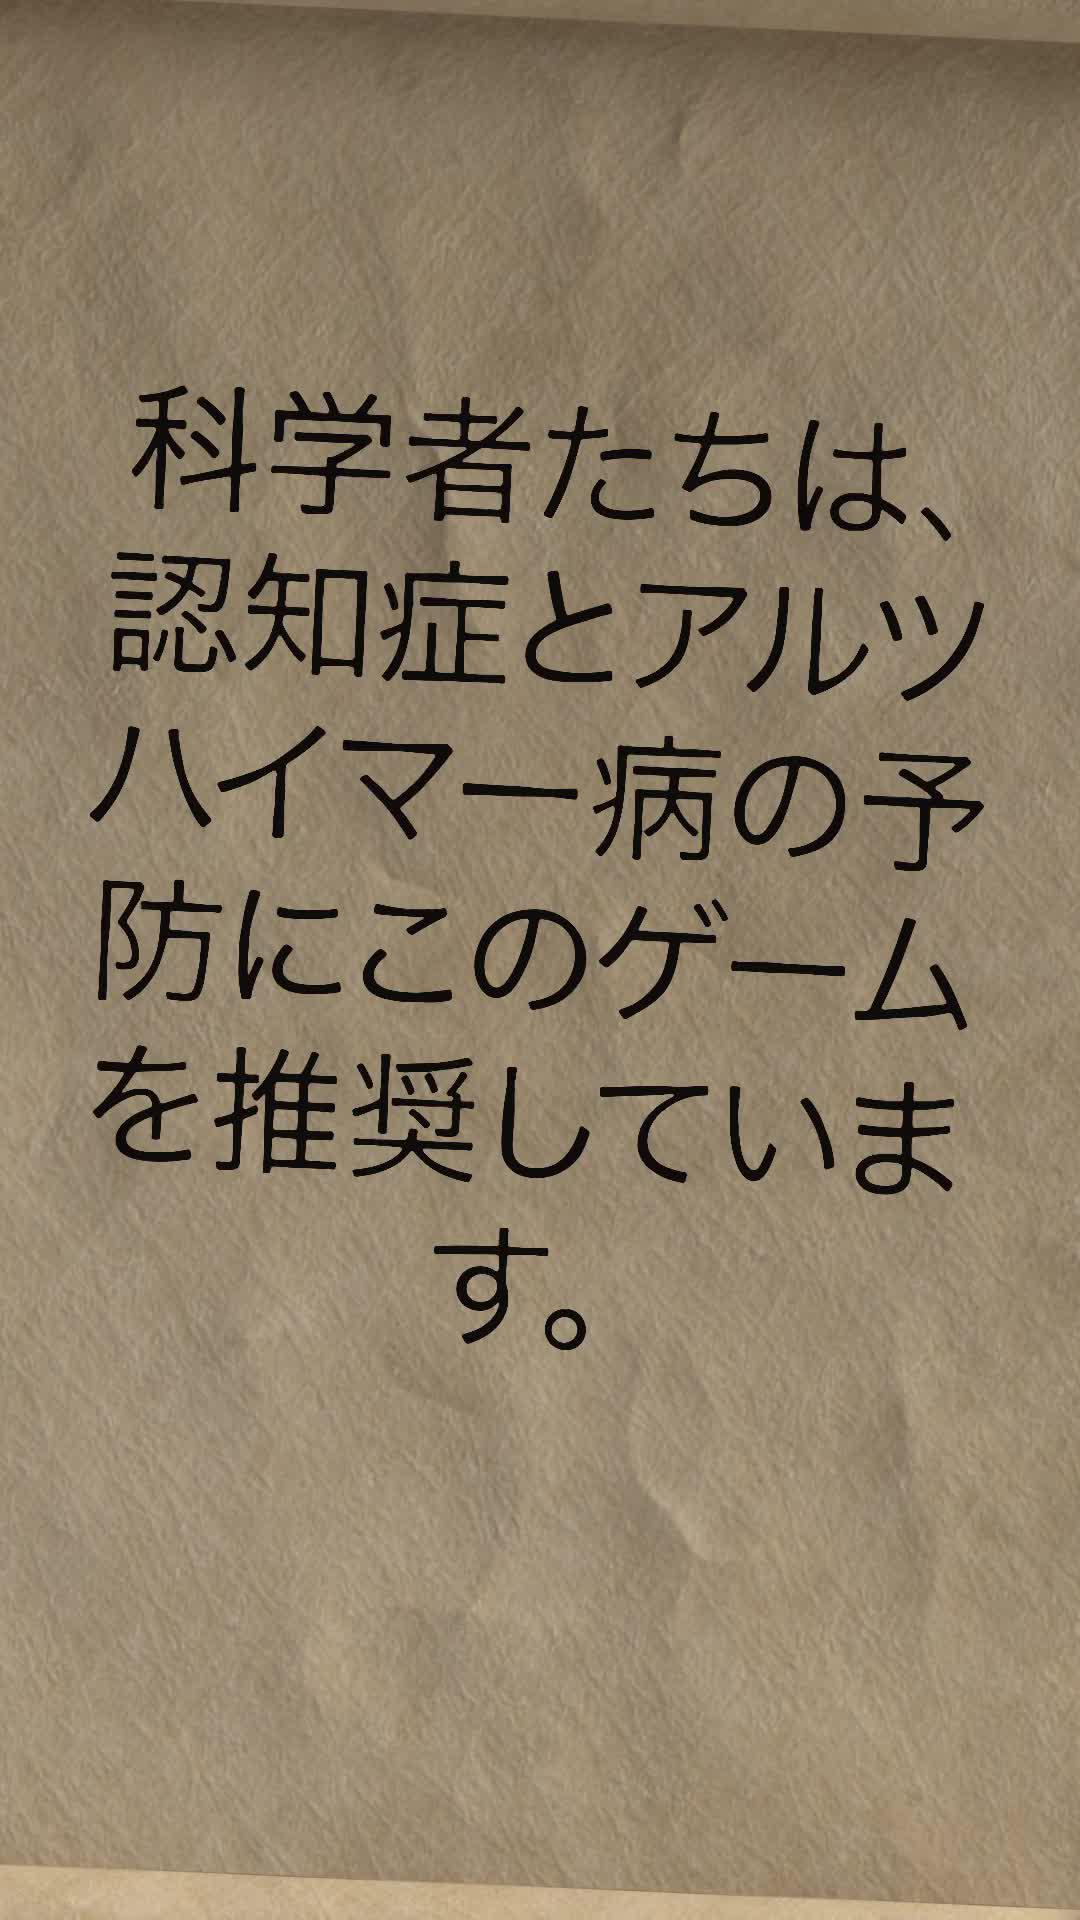 科学者たちは、
認知症とアルツ
ハイマー病の予
防にこのゲーム
を推奨していま
す。